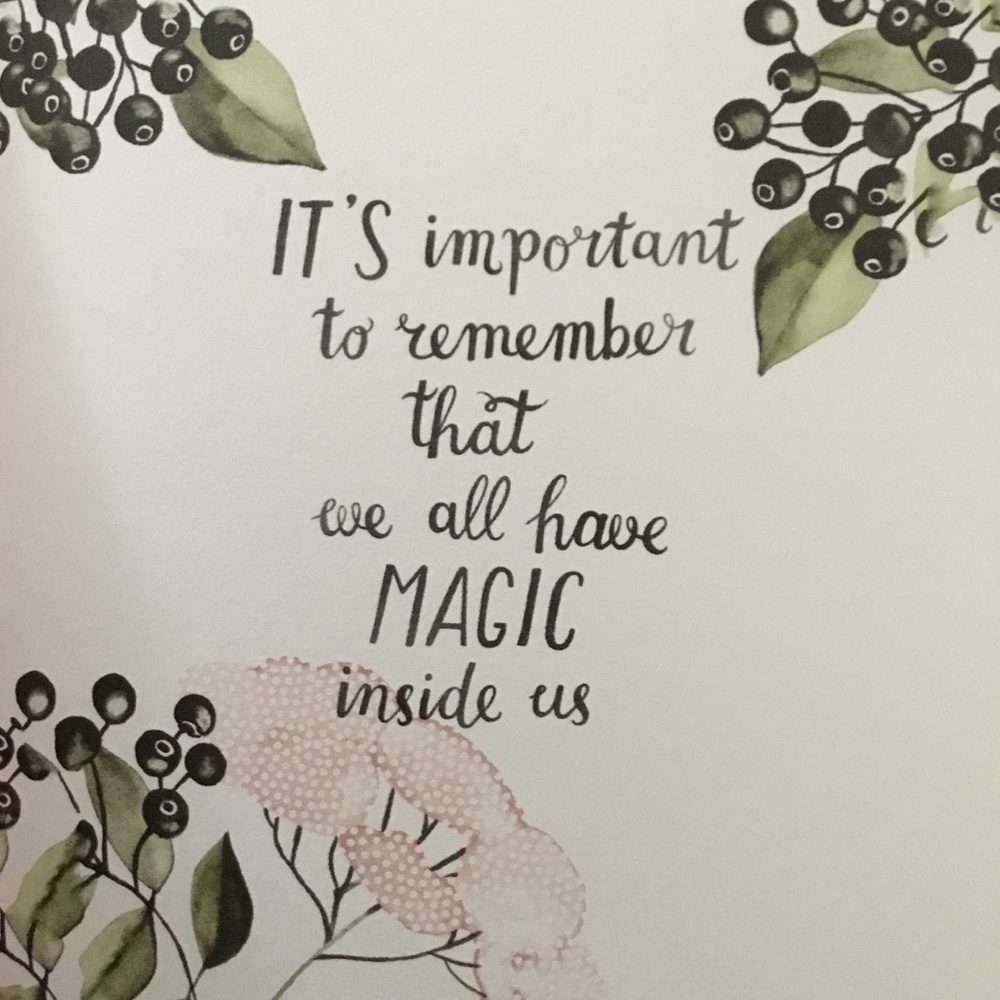 IT'S important
to remember
that
we all have
MAGIC
inside us